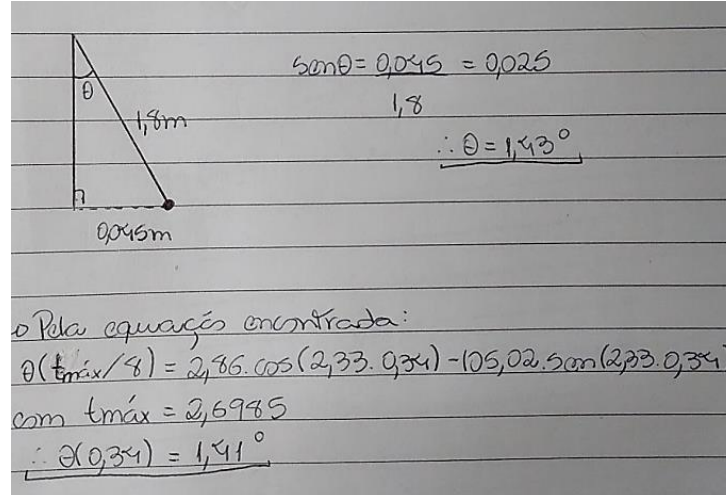 senθ = 0,045 = 0,025
1,8
∴ θ = 1,43°
θ
1,8m
0,045m
o Pela equação encontrada:
θ(tmáx/8) = 2,86.cos(2,33.0,34) - 105,02.sen(2,33.0,34)
com tmáx = 2,6985
∴ θ(0,34) = 1,41°